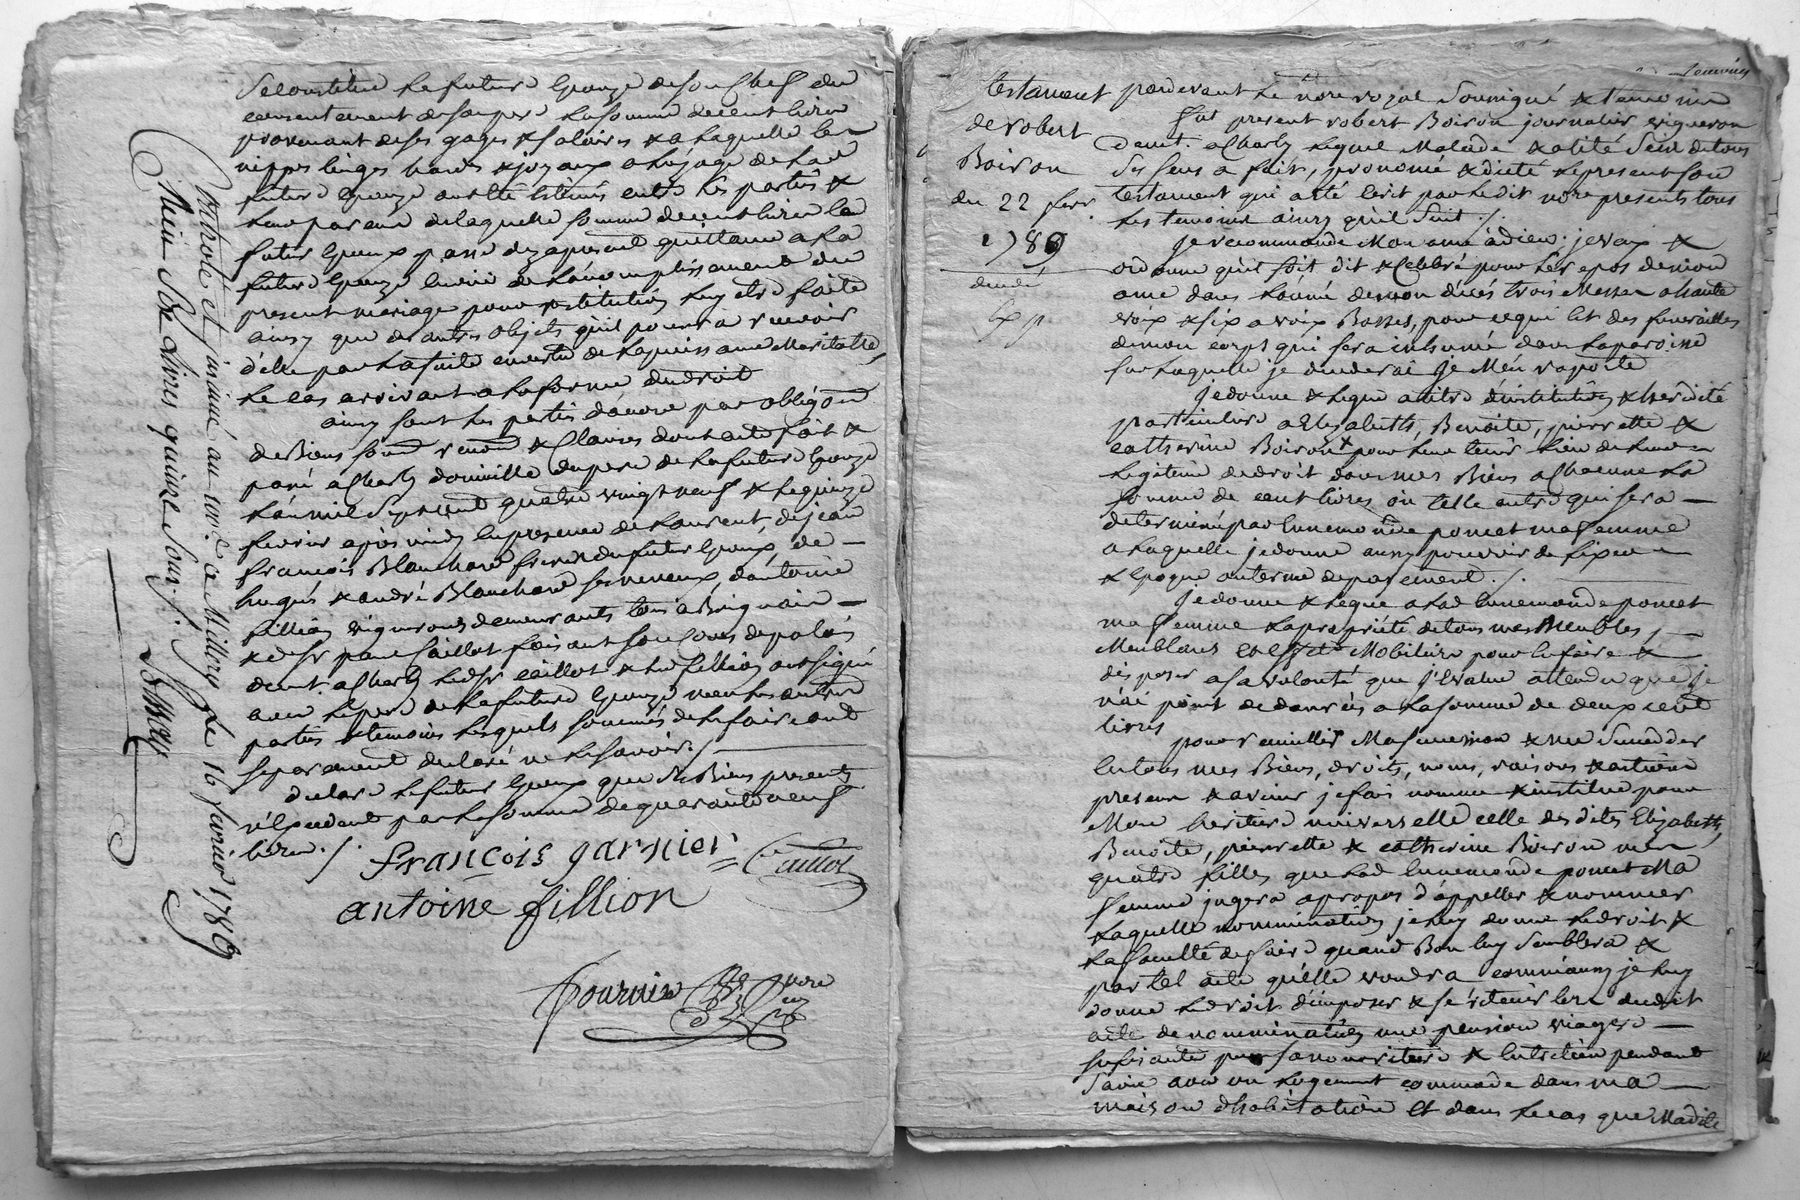 Se constitue la future Epouze de son Chef du
consentement de son pere la somme de cent livres
provenant de ses gages & salaires & a laquelle les
nippes linges hardes & joyaux a lusage de lad.
future Epouze ont été Estimés entre les parties &
de laquelle somme de cent livres le
futur Epoux passe dez apresent quittance a la
future Epouze
present mariage pour restitution luy etre faite
ainsy que des autres objets qu'il pourra recevoir
d'elle par la suite en vertu de la puissance Maritalle,
le cas arrivant a la forme du droit
ainsy sont les parties d'accord par obligaõn
de Biens soumõn renõn & Clauses dont acte fait &
passé a Charly domicille du pere de la future Epouze
L'an mil sept cent quatre vingt neuf & le quinze
fevrier après midy En presence de Laurent, de jean
françois Blanchard freres du futur Epoux, de
hugues & andré Blanchard ses neveux, d'antoine
fillion vignerons demeurants tous a Brignais
& de Sr caillot faisant
demt. a Charly led Sr Caillot & led fillion ont signé
avec le pere de la future Epouze, non les autres
parties & temoins lesquels sommés de le faire ont
separement declaré ne le savoir ./.
declare le futur Epoux que ses Biens presents
n'Excedent pas la somme de quarante neuf
livres ./.
françois garnier
Caillot
antoine fillion
fournier
nore
Controlé et insinué au long a Millery Le 16 fevrier 1789
Reçu Six Livres quinze Sous ./.
testament
de robert
Boiron
du 22 fevr.
1789
Exp
pardevant Le nore royal Soussigné & temoins
fut present robert Boiron journalier vigneron
demt. a Charly lequel Malade & alité Sain de tous
ses sens a fait, prononcé & dicté le present son
testament qui a été écrit par ledit nore presents tous
les temoins ainsy qu'il suit ./.
je recommande Mon ame à dieu; je veux &
ordonne qu'il soit dit & Celebré pour le repos de mon
ame dans L'année de mon décés trois Messes a haute
voix & six a voix Basses, pour ce qui Est des funerailles
de mon corps qui sera inhumé dans la paroisse
sur laquelle je decederai je M'en raporte
je donne & legue a titre d'institution & heredité
particuliere a Elizabeth, Benoite, pierrette &
catherine Boiron pour leur tenir lieu de leur
legitime de droit dans mes Biens a Chacune la
somme de cent livres ou telle autre qui sera
determinée par Ennemonde poncet ma femme
a laquelle je donne aussy pouvoir de fixer
& Epoque au terme de payement ./.
je donne & legue a lad Ennemonde poncet
ma femme la propriété de tous mes Meubles,
Meublants et Effets Mobiliers pour En faire &
disposer a sa volonté que j'Evalue attendu que je
n'ai point de danrées a la somme de deux cent
livres
pour receuillir Ma succession & me succeder
En tous mes Biens, droits, noms, raisons & actions
presens & avenir je fais nomme & institue pour
Mon heritiere universelle celle des dites Elizabeth,
Benoite, pierrette & catherine Boiron mes
quatre filles que lad Ennemonde poncet Ma
femme jugera a propos d'appeller & nommer
& laquelle nommination je luy donne le droit &
la faculté de faire quand Bon luy Semblera &
par tel acte qu'elle voudra comme aussy je luy
donne le droit d'imposer & se retenir lors dudit
acte de nommination une pension viagere
suffisante pour sa nourriture & Entretien pendant
sa vie avec un logement commode dans ma
maison d'habitation Et dans le cas que Madite